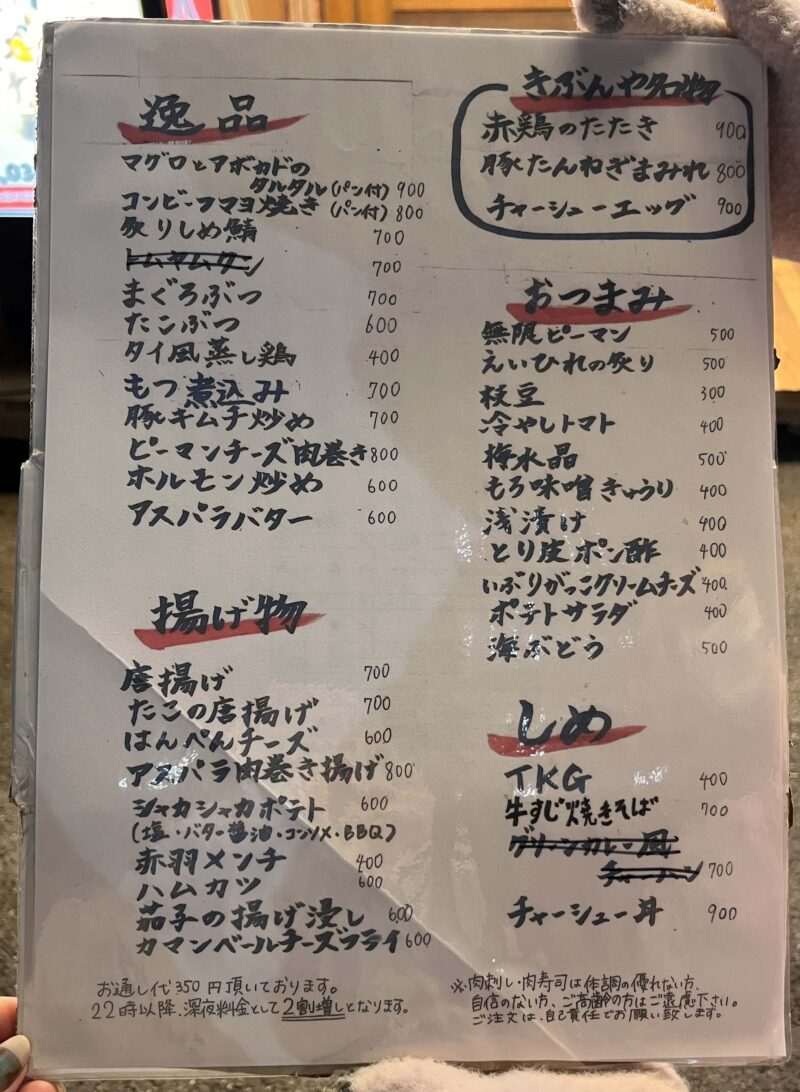 逸品
マグロとアボカドの
タルタル(パン付) 900
コンビーフマヨ焼き(パン付) 800
炙りしめ鯖 700
トムヤムクン 700
まぐろぶつ 700
たこぶつ 600
タイ風蒸し鶏 400
もつ煮込み 700
豚キムチ炒め 700
ピーマンチーズ肉巻き 800
ホルモン炒め 600
アスパラバター 600
揚げ物
唐揚げ 700
たこの唐揚げ 700
はんぺんチーズ 600
アスパラ肉巻き揚げ 800
シャカシャカポテト 600
(塩・バター醤油・コンソメ・BBQ)
赤羽メンチ 400
ハムカツ 600
茄子の揚げ浸し 600
カマンベールチーズフライ 600
お通し代350円頂いております。
22時以降、深夜料金として2割増しとなります。
きぶんや名物
赤鶏のたたき 900
豚たんねぎまみれ 800
チャーシューエッグ 900
おつまみ
無限ピーマン 500
えいひれの炙り 500
枝豆 300
冷やしトマト 400
梅水晶 500
もろ味噌きゅうり 400
浅漬け 400
とり皮ポン酢 400
いぶりがっこクリームチーズ 400
ポテトサラダ 400
海ぶどう 500
しめ
TKG 400
牛すじ焼きそば 700
グリーンカレー風
チャーハン 700
チャーシュー丼 900
※肉刺し・肉寿司は体調の優れない方、
自信のない方、ご高齢の方はご遠慮下さい。
ご注文は、自己責任でお願い致します。